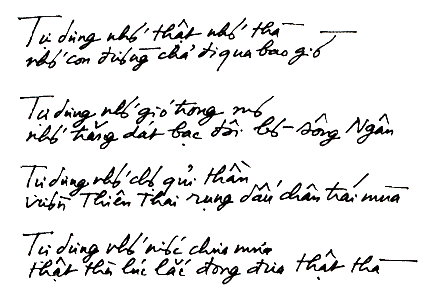 Tự dưng nhớ thật nhớ thà —
nhớ con đường chả đi qua bao giờ
Tự dưng nhớ gió trong mơ
nhớ trăng dát bạc đôi bờ sông Ngân
Tự dưng nhớ gửi thân
vườn Thiên Thai rụng dấu chân trái mùa
Tự dưng nhớ chưa mưa
thật thà lúc lắc đong đưa thật thà